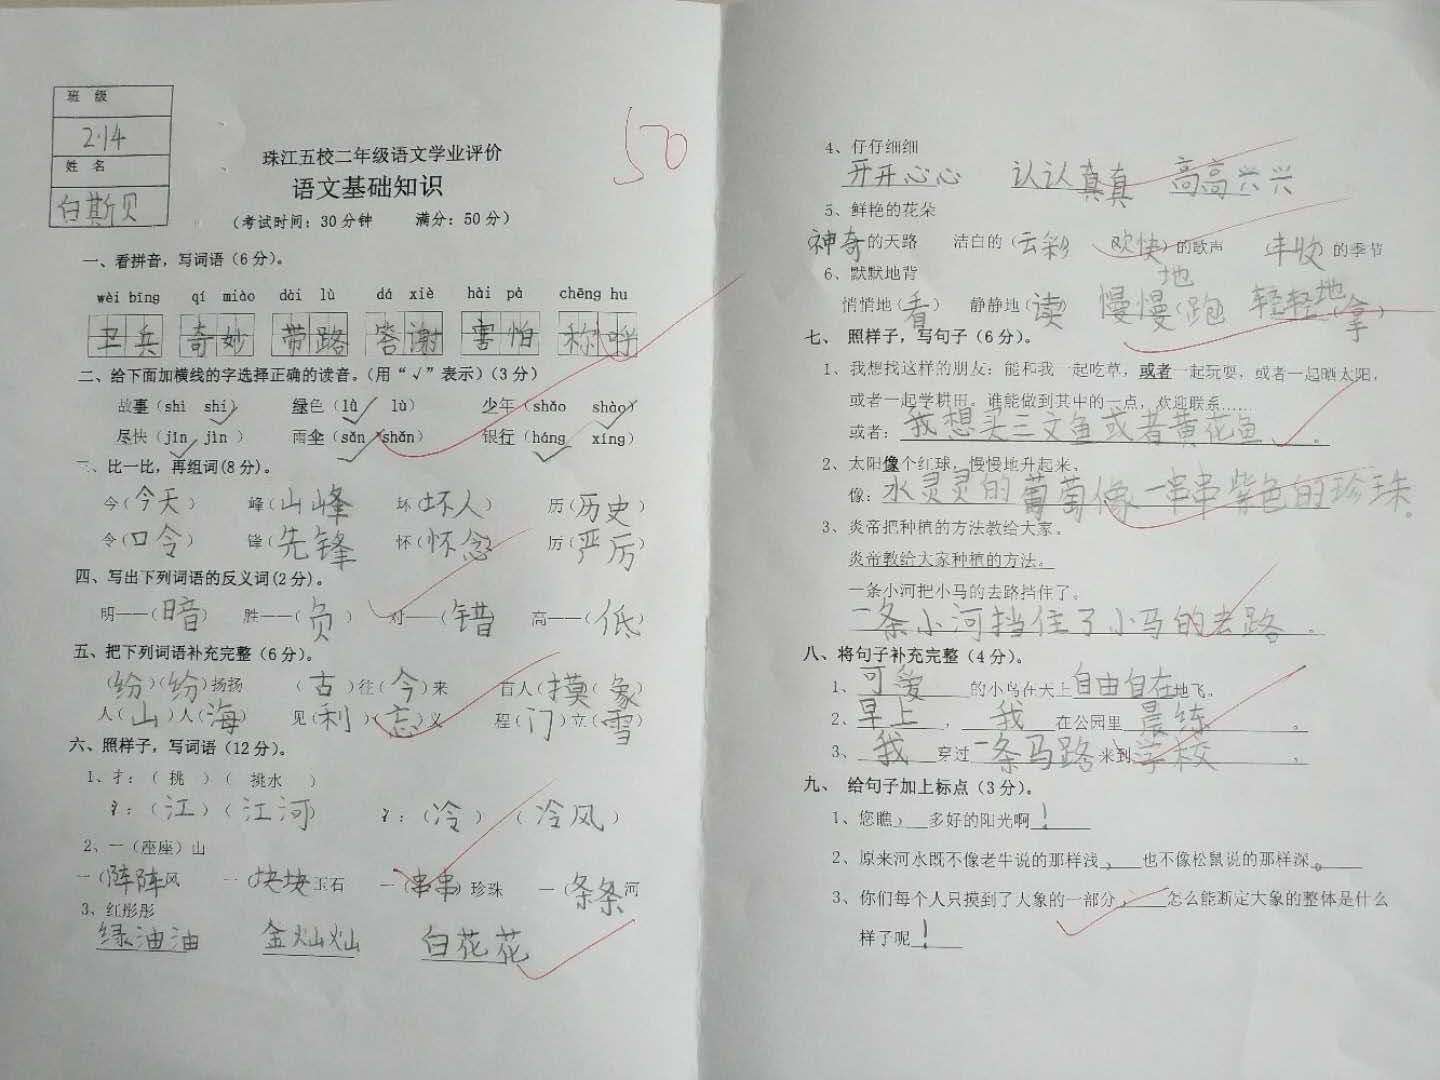 班 级
2.14
姓 名
白斯贝
50
珠江五校二年级语文学业评价
语文基础知识
(考试时间：30分钟 满分：50分)
一、看拼音，写词语(6分)。
wèi bīng qí miào dài lù dá xiè hài pà chēng hu
卫兵 奇妙 带路 答谢 害怕 称呼
二、给下面加横线的字选择正确的读音。(用“√”表示)(3分)
故事(shì shí) 绿色(lǜ lù) 少年(shǎo shào)
尽快(jǐn jìn) 雨伞(sǎn shǎn) 银行(háng xíng)
三、比一比，再组词(8分)。
今(今天) 峰(山峰) 坏(坏人) 历(历史)
令(口令) 锋(先锋) 怀(怀念) 厉(严厉)
四、写出下列词语的反义词(2分)。
明——(暗) 胜——(负) 对——(错) 高——(低)
五、把下列词语补充完整(6分)。
(纷)(纷)扬扬 (古)往(今)来 盲人(摸)(象)
人(山)人(海) 见(利)(忘)义 程(门)立(雪)
六、照样子，写词语(12分)。
1、扌：( 挑 )( 挑水 )
氵：(江)(江河) 冫：(冷)(冷风)
2、一(座座)山
一(阵阵)风 一(块块)玉石 一(串串)珍珠 一(条条)河
3、红彤彤
绿油油 金灿灿 白花花
4、仔仔细细
开开心心 认认真真 高高兴兴
5、鲜艳的花朵
(神奇)的天路 洁白的(云彩) (欢快)的歌声 丰收 的季节
6、默默地背
悄悄地(看) 静静地(读) 慢慢地(跑) 轻轻地(拿)
七、照样子，写句子(6分)。
1、我想找这样的朋友：能和我一起吃草，或者一起玩耍，或者一起晒太阳，
或者一起学耕田。谁能做到其中的一点，欢迎联系……
或者：我想买三文鱼或者黄花鱼。
2、太阳像个红球，慢慢地升起来。
像：水灵灵的葡萄像一串串紫色的珍珠。
3、炎帝把种植的方法教给大家。
炎帝教给大家种植的方法。
一条小河把小马的去路挡住了。
一条小河挡住了小马的去路。
八、将句子补充完整(4分)。
1、可爱的小鸟在天上自由自在地飞。
2、早上，我在公园里晨练。
3、我穿过一条马路来到学校。
九、给句子加上标点(3分)。
1、您瞧，多好的阳光啊！
2、原来河水既不像老牛说的那样浅，也不像松鼠说的那样深。
3、你们每个人只摸到了大象的一部分，怎么能断定大象的整体是什么
样子呢！